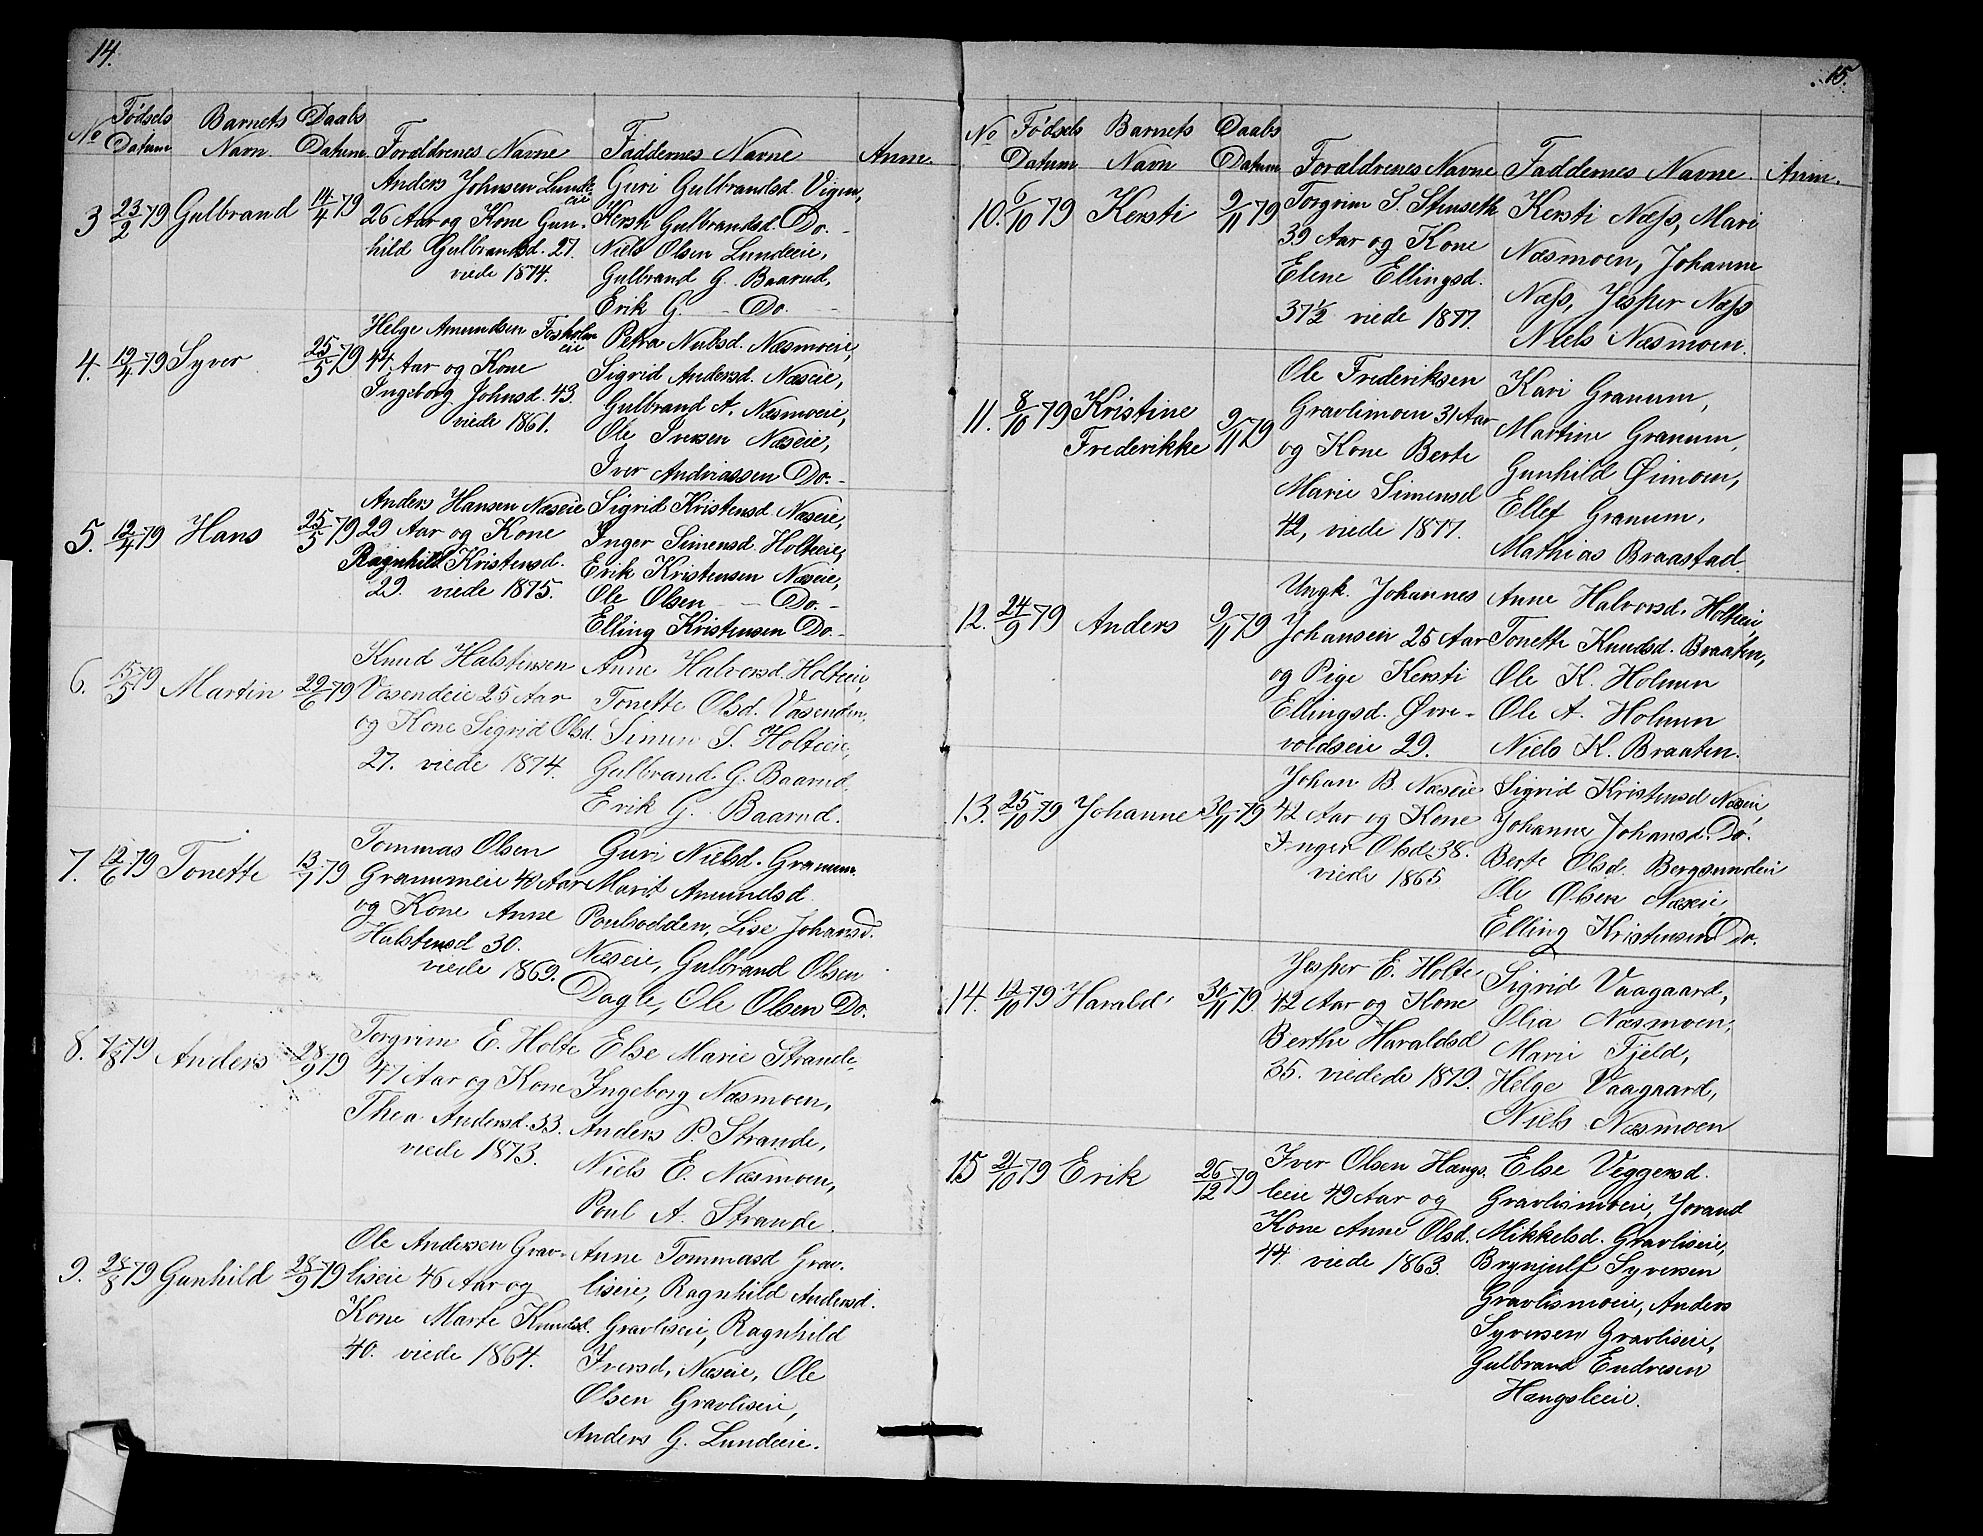 14.
No Fødsels Datum Barnets Navn. Daabs Datum. Forældrenes Navne Faddernes Navne Anm.
3 23/2 79 Gulbrand 14/4 79
Anders Johnsen Lunde-
eie
26 Aar og Kone Gun-
hild Gulbrandsd. 27.
viede 1874.
Guri Gulbrandsd. Vigen,
Kersti Gulbrandsd. Do.
Niels Olsen Lundeeie,
Gulbrand G. Baarud,
Erik G. - Do. -
4. 19/4 79 Syver 25/5 79
Helge Amundsen Fosholm
eie
44 Aar og Kone
Ingeborg Johnsd. 43.
viede 1861.
Petra Nubsd. Næsmoeie,
Sigrid Andersd. Næseie,
Gulbrand A. Næsmoeie,
Ole Iversen Næseie,
Iver Andriassen Do. -
5. 12/4 79 Hans 25/5 79
Anders Hansen Næseie
29 Aar og Kone
Ragnhild Kristensd.
29. viede 1875.
Sigrid Kristensd. Næseie,
Inger Simensd. Holteeie,
Erik Kristensen Næseie,
Ole Olsen - Do. -
Elling Kristensen Do. -
6. 15/5 79 Martin 29/6 79
Knud Halstensen
Vasendeie 25 Aar
og Kone Sigrid Olsd.
27. viede 1874.
Anne Halvorsd. Holteeie,
Tonette Olsd. Vasenden,
Simen S. Holteeie,
Gulbrand G. Baarud,
Erik G. Baarud.
7. 12/6 79 Tonette 13/7 79
Tommas Olsen
Granumeie 40 Aar
og Kone Anne
Halstensd 30.
viede 1869.
Guri Nielsd. Granum
Marit Amundsd.
Poulsodden, Lise Johansd.
Næseie, Gulbrand Olsen
Dagle, Ole Olsen Do.
8. 7/8 79 Anders 28/9 79
Torgrim E. Holte
47 Aar og Kone
Thea Andersd. 33.
viede 1873.
Else Marie Strande,
Ingeborg Næsmoen,
Anders P. Strande,
Niels E. Næsmoen,
Poul A. Strande.
9. 28/8 79 Gunhild 28/9 79
Ole Andersen Grav-
liseie 46 Aar og
Kone Marte Knudsd.
40. viede 1864.
Anne Tommasd Grav-
liseie, Ragnhild Andersd.
Gravliseie, Ragnhild
Iversd, Næseie, Ole
Olsen Gravliseie,
Anders G. Lundeeie.
15.
No Fødsels Datum Barnets Navn Daabs Datum Forældrenes Navne Faddernes Navne. Anm.
10. 6/10 79 Kersti 9/11 79
Torgrim S. Stenseth
39 Aar og Kone
Elene Ellingsd.
37½ viede 1877.
Kersti Næss, Mari
Næsmoen, Johanne
Næss, Jesper Næss
Niels Næsmoen.
11. 8/10 79 Kristine
Frederikke 9/11 79
Ole Frederiksen
Gravlimoen 31 Aar
og Kone Berte
Marie Simensd
42, viede 1877.
Kari Granum,
Martine Granum,
Gunhild Øimoen,
Ellef Granum,
Mathias Braastad.
12. 24/9 79 Anders 9/11 79
Ungk. Johannes
Johansen 25 Aar
og Pige Kersti
Ellingsd. Øvre-
voldseie 29.
Anne Halvorsd. Holteeie
Tonette Knudsd. Braaten,
Ole K. Holmen
Ole A. Holmen
Niels K. Braaten.
13. 25/10 79 Johanne 30/11 79
Johan B. Næseie
42 Aar og Kone
Inger Olsd. 38.
viede 1865
Sigrid Kristensd Næseie
Johanne Johansd. Do.
Berte Olsd. Bergsundeie
Ole Olsen Næseie,
Elling Kristensen Do.
14. 12/10 79 Harald 30/11 79
Jesper E. Holte
42 Aar og Kone
Berthe Haraldsd
35. viedede 1879.
Sigrid Vaagaard,
Olia Næsmoen,
Marie Fjeld,
Helge Vaagaard,
Niels Næsmoen
15 21/10 79 Erik 26/12 79
Iver Olsen Hængs-
leeie 49 Aar og
Kone Anne Olsd.
44. viede 1863.
Else Veggersd.
Gravlismoeie, Jorand
Mikkelsd. Gravliseie,
Brynjulf Syversen
Gravlismoeie, Anders
Syversen Gravliseie,
Gulbrand Endresen
Hængsleeie.